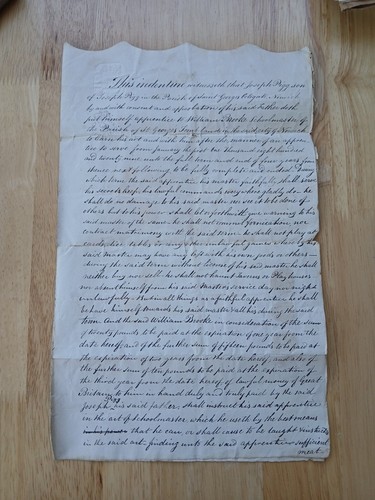 This indenture witnesseth that Joseph Pegg son
of Joseph Pegg in the Parish of Saint Georges Colegate Norwich
by and with consent and approbation of his said Father doth
put himself apprentice to William Brooke Schoolmaster of
the Parish of St Georges in the and city of Norwich
to learn his art and with him after the manner of an appren
tice to serve from January the first One thousand eight hundred
and twenty nine until the full term and end of four years from
thence next following to be fully complete and ended During
which term the said apprentice his master faithfully shall serve
his secrets keep his lawful commands every where gladly do he
shall do no damage to his said master nor see it to be done of
others but to his power shall let or forthwith give warning to his
said master of the same he shall not commit fornication nor
contract matrimony within the said term he shall not play at
cards dice tables or any other unlawful games whereby his
said Master may have any loss with his own goods or others
during the said term without licence of his said master he shall
neither buy nor sell he shall not haunt Taverns or Playhouses
nor absent himself from his said Masters service day nor night
unlawfully And in all things as a faithful apprentice he shall
behave himself towards his said master and all his during the said
term And the said William Brooke in consideration of the sum
of twenty pounds to be paid at the expiration of one year from the
date hereof and of the further sum of fifteen pounds to be paid at
the expiration of two years from the date hereof and also of
the further sum of ten pounds to be paid at the expiration of
the third year from the date hereof of lawful money of Great
Britain to him in hand duly and truly paid by the said
Joseph Pegg his said father shall instruct his said apprentice
in the art of Schoolmaster which he useth by the best means
that he can or shall cause to be taught & instructed
in the said art finding unto the said apprentice sufficient
meat